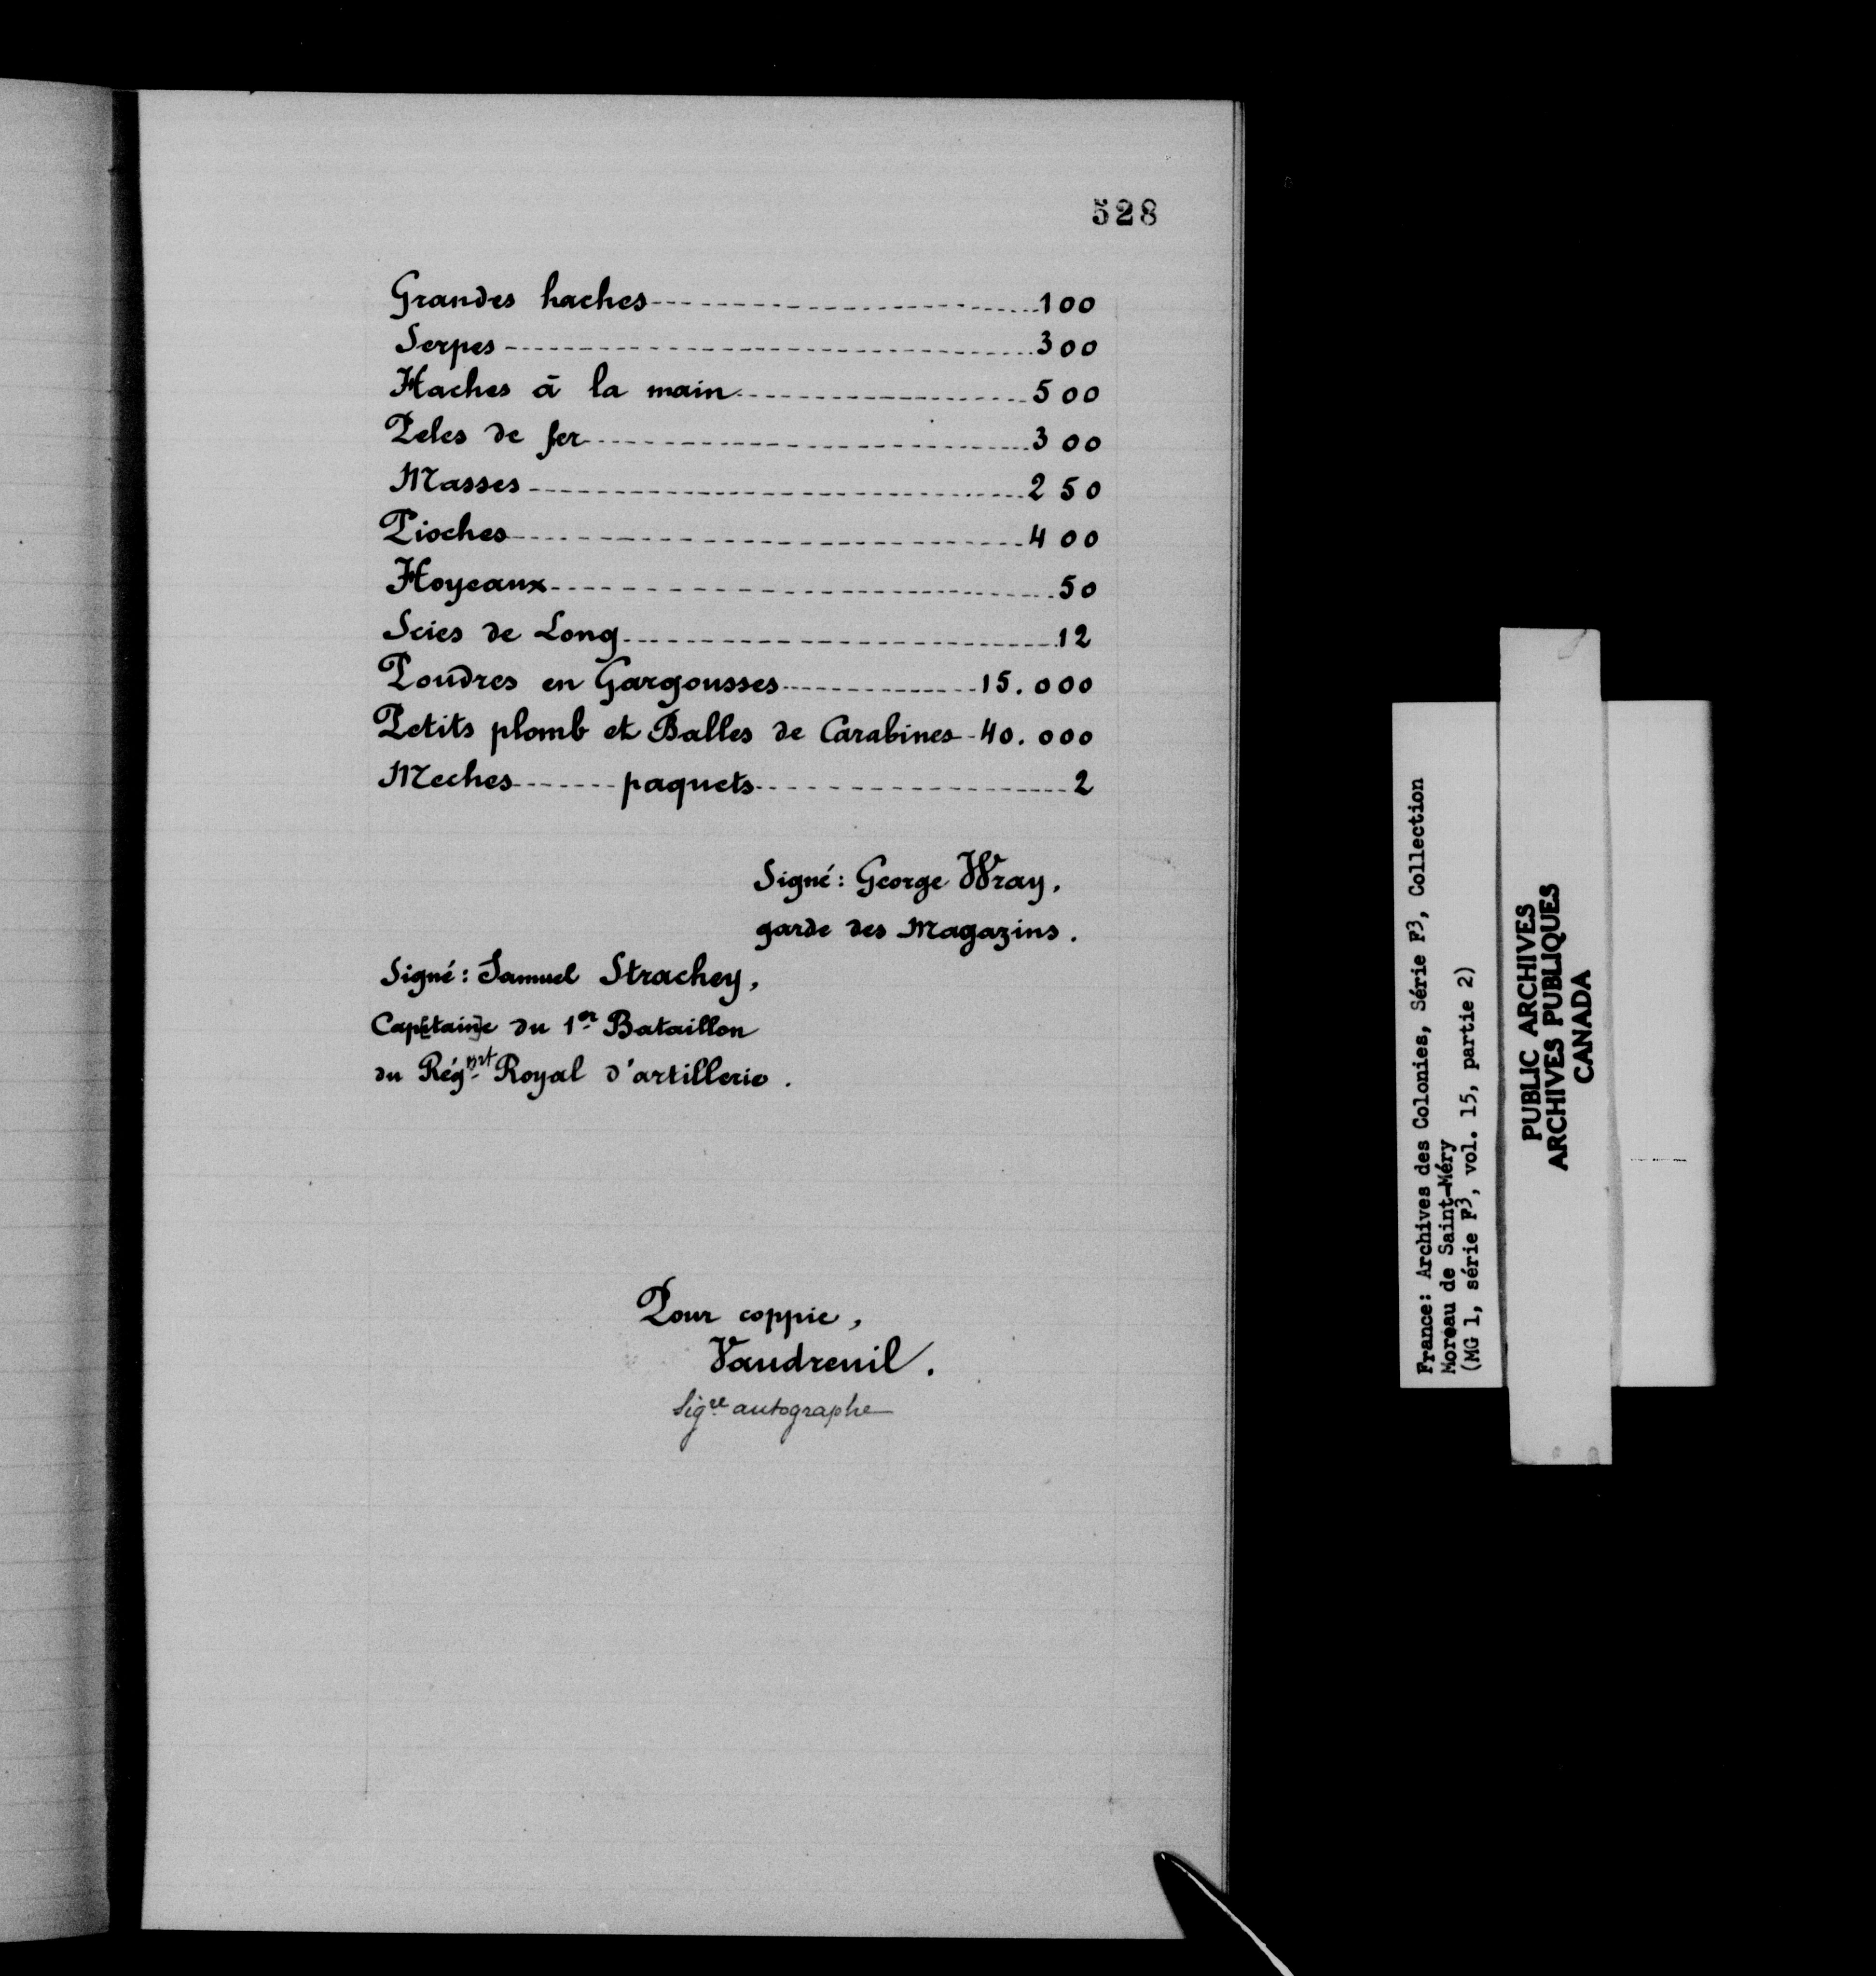 528
Grandes haches 100
Serpes 300
Haches à la main 500
Peles de fer 300
Masses 250
Pioches 400
Hoyeaux 50
Scies de Long 12
Poudres en Gargousses 15.000
Petits plomb et Balles de Carabines 40.000
Meches paquets 2
Signé: George Wray,
garde des Magazins.
Signé: Samuel Strachey,
Cap[itain]e du 1er Bataillon
du Régmt Royal d'artillerie.
Pour coppie,
Vaudreuil.
Sigre autographe
France: Archives des Colonies, Série F3, Collection
Moreau de Saint-Méry
(MG 1, série F3, vol. 15, partie 2)
PUBLIC ARCHIVES
ARCHIVES PUBLIQUES
CANADA